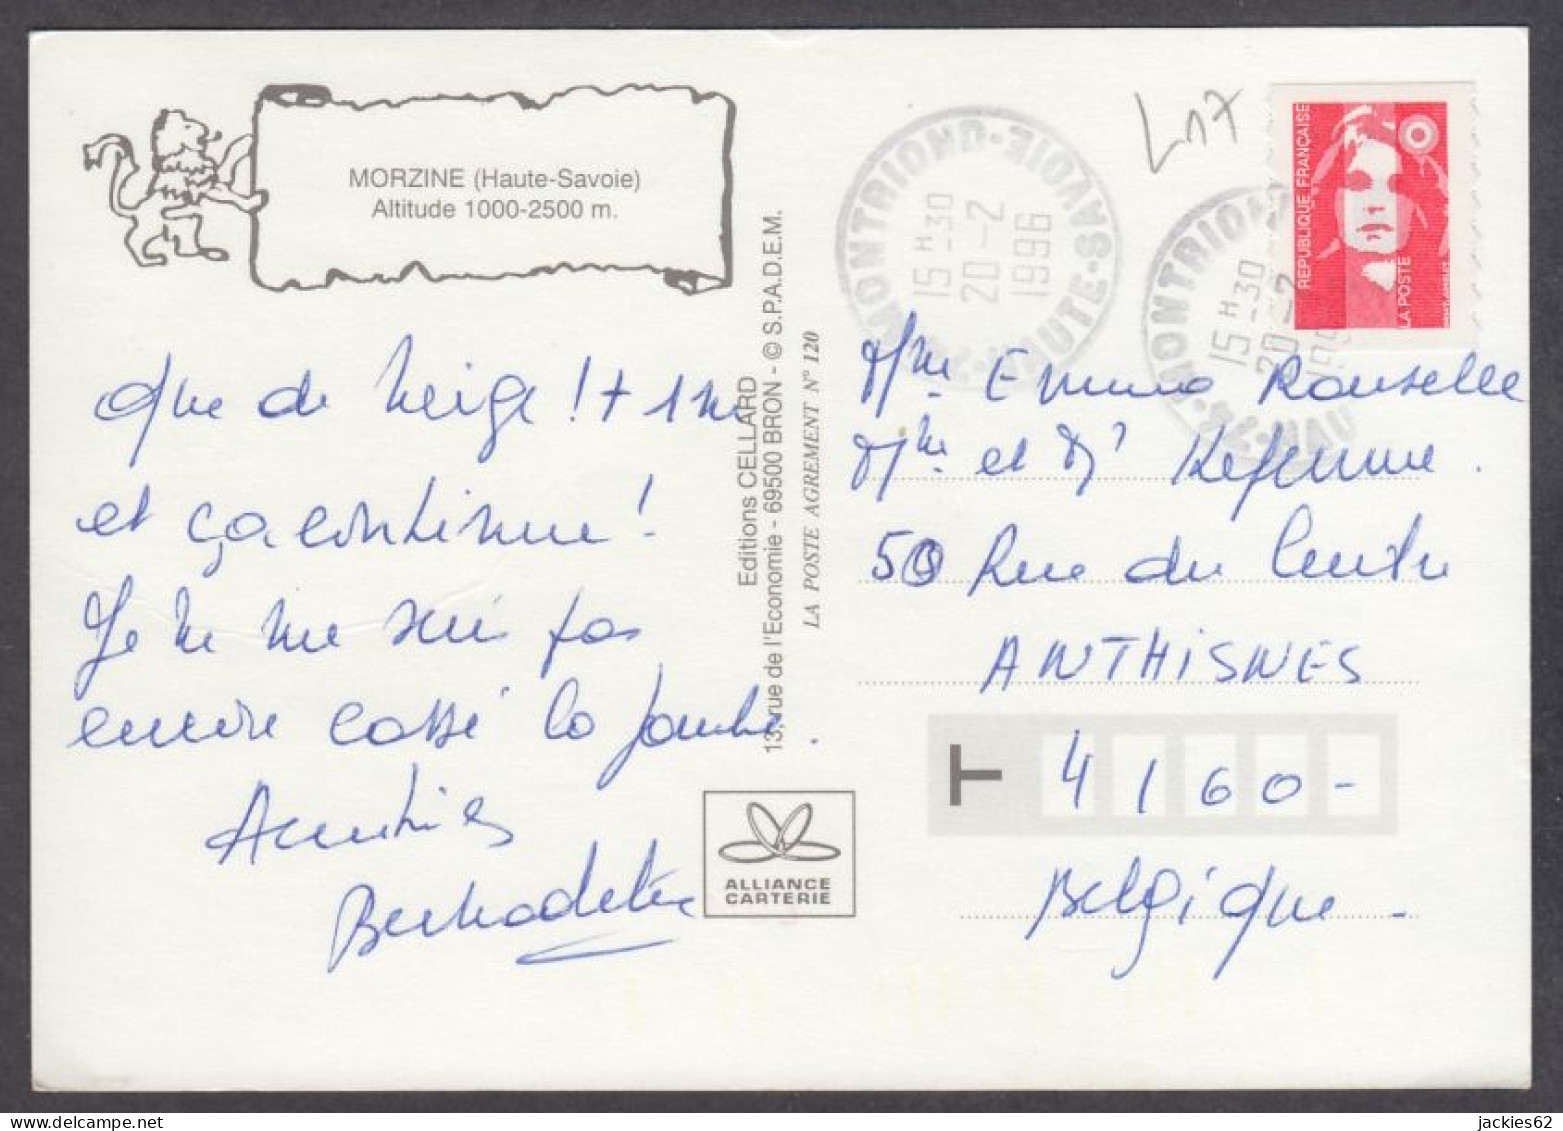 MORZINE (Haute-Savoie)
Altitude 1000-2500 m.
Que de neige ! + 1 m
et ça continue !
Je ne me suis pas
encore cassé la jambe.
Amitiés
Bernadette
Editions CELLARD
13, rue de l'Economie - 69500 BRON - © S.P.A.D.E.M.
LA POSTE AGREMENT N° 120
ALLIANCE
CARTERIE
L17
74-MONTRIOND-HAUTE-SAVOIE
15 H -30
20 -2
1996
74-MONTRIOND
15 H -30
20 -2
REPUBLIQUE FRANÇAISE
LA POSTE
Mme Emma Rouselle
Mme et Mr Kefenne.
50 Rue du Centre
ANTHISNES
T 4 1 6 0 -
Belgique -
jackies62